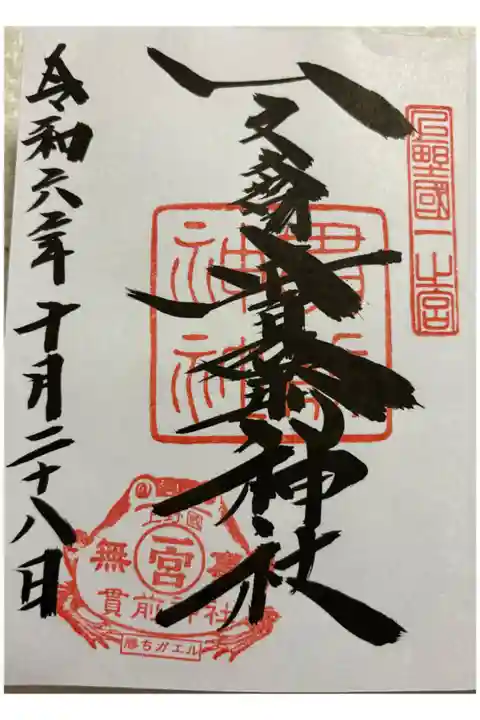 上野國一之宮
一之宮貫前神社
貫前神社
令和六年十月二十八日
上野國
一宮
無
貫前神社
勝ちガエル